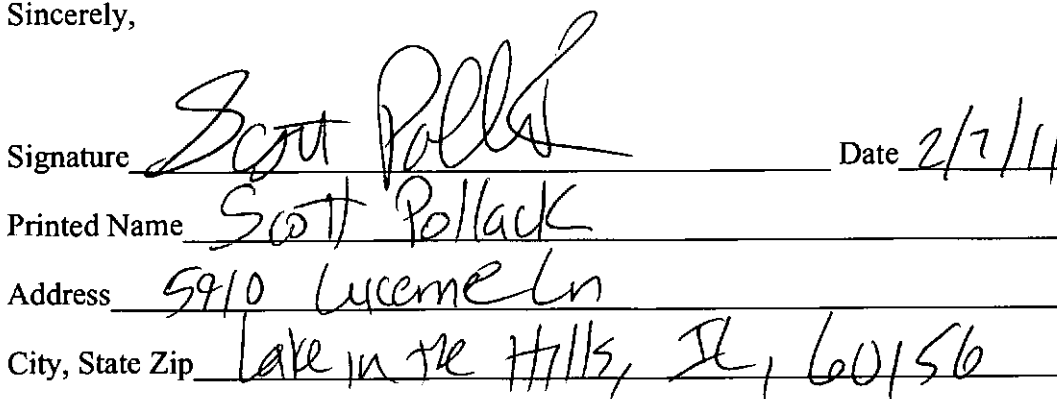 Sincerely,
Signature Scott Pollack Date 2/7/11
Printed Name Scott Pollack
Address 5910 Lucerne Ln
City, State Zip Lake in the Hills, IL, 60156